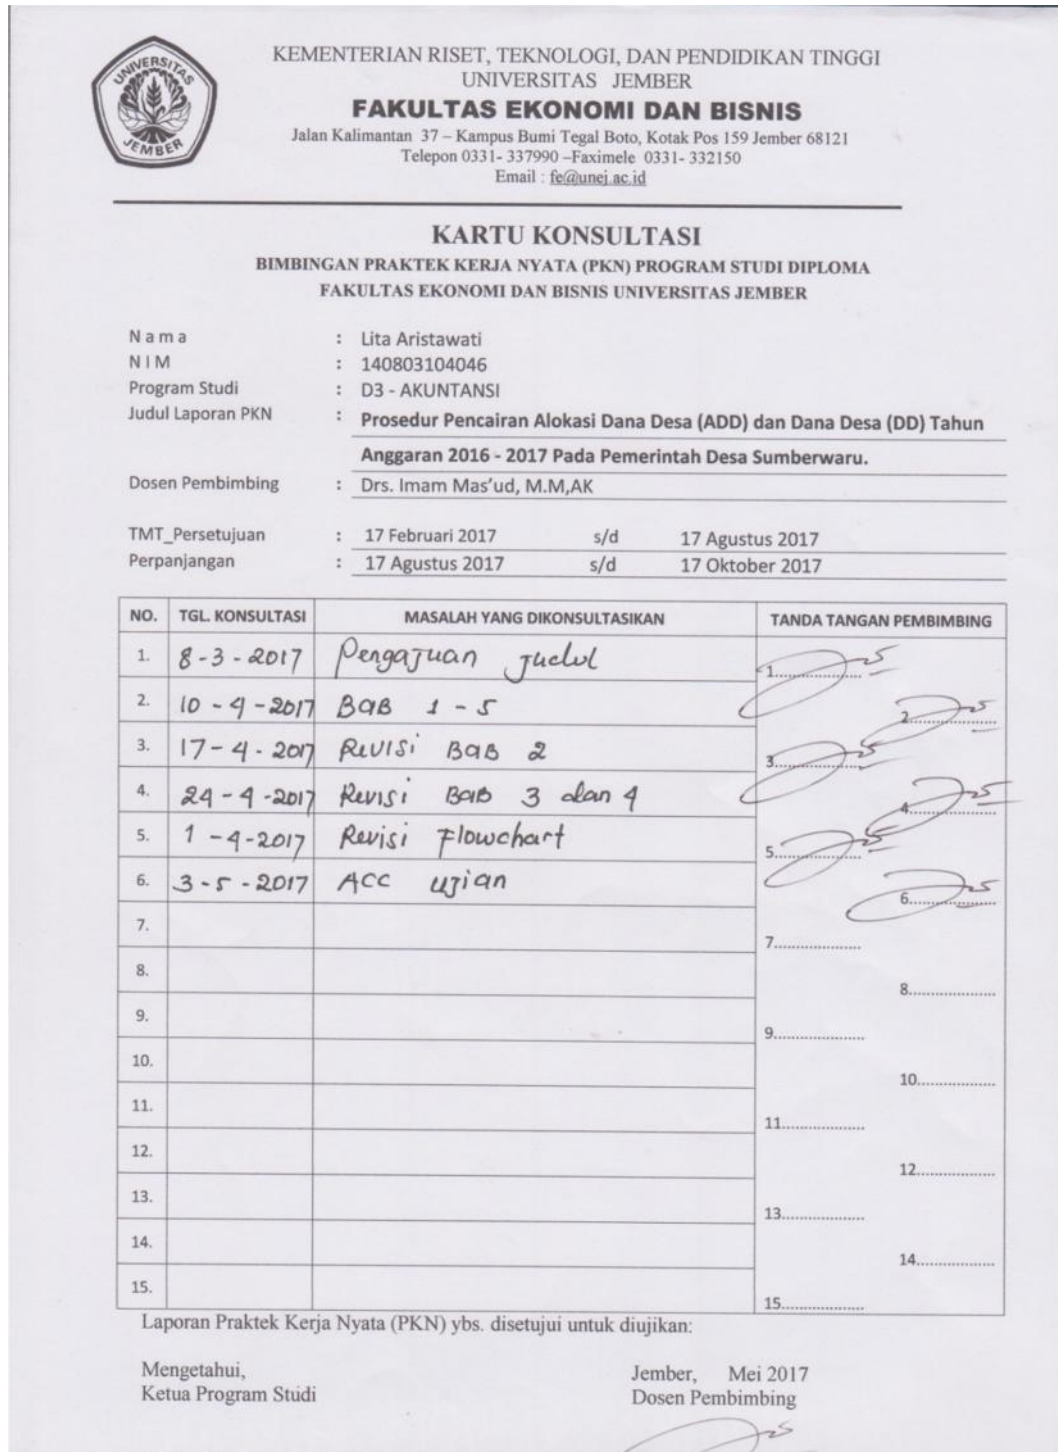 UNIVERSITAS
JEMBER
KEMENTERIAN RISET, TEKNOLOGI, DAN PENDIDIKAN TINGGI
UNIVERSITAS JEMBER
FAKULTAS EKONOMI DAN BISNIS
Jalan Kalimantan 37 – Kampus Bumi Tegal Boto, Kotak Pos 159 Jember 68121
Telepon 0331- 337990 –Faximele 0331- 332150
Email : fe@unej.ac.id
KARTU KONSULTASI
BIMBINGAN PRAKTEK KERJA NYATA (PKN) PROGRAM STUDI DIPLOMA
FAKULTAS EKONOMI DAN BISNIS UNIVERSITAS JEMBER
N a m a : Lita Aristawati
N I M : 140803104046
Program Studi : D3 - AKUNTANSI
Judul Laporan PKN : Prosedur Pencairan Alokasi Dana Desa (ADD) dan Dana Desa (DD) Tahun
Anggaran 2016 - 2017 Pada Pemerintah Desa Sumberwaru.
Dosen Pembimbing : Drs. Imam Mas’ud, M.M,AK
TMT_Persetujuan : 17 Februari 2017 s/d 17 Agustus 2017
Perpanjangan : 17 Agustus 2017 s/d 17 Oktober 2017
NO. TGL. KONSULTASI MASALAH YANG DIKONSULTASIKAN TANDA TANGAN PEMBIMBING
1. 8-3-2017 Pengajuan judul 1....................
2. 10-4-2017 BAB 1-5 2....................
3. 17-4-2017 Revisi BAB 2 3....................
4. 24-4-2017 Revisi BAB 3 dan 4 4....................
5. 1-4-2017 Revisi Flowchart 5....................
6. 3-5-2017 ACC ujian 6....................
7. 7....................
8. 8....................
9. 9....................
10. 10..................
11. 11..................
12. 12..................
13. 13..................
14. 14..................
15. 15..................
Laporan Praktek Kerja Nyata (PKN) ybs. disetujui untuk diujikan:
Mengetahui,
Ketua Program Studi
Jember, Mei 2017
Dosen Pembimbing